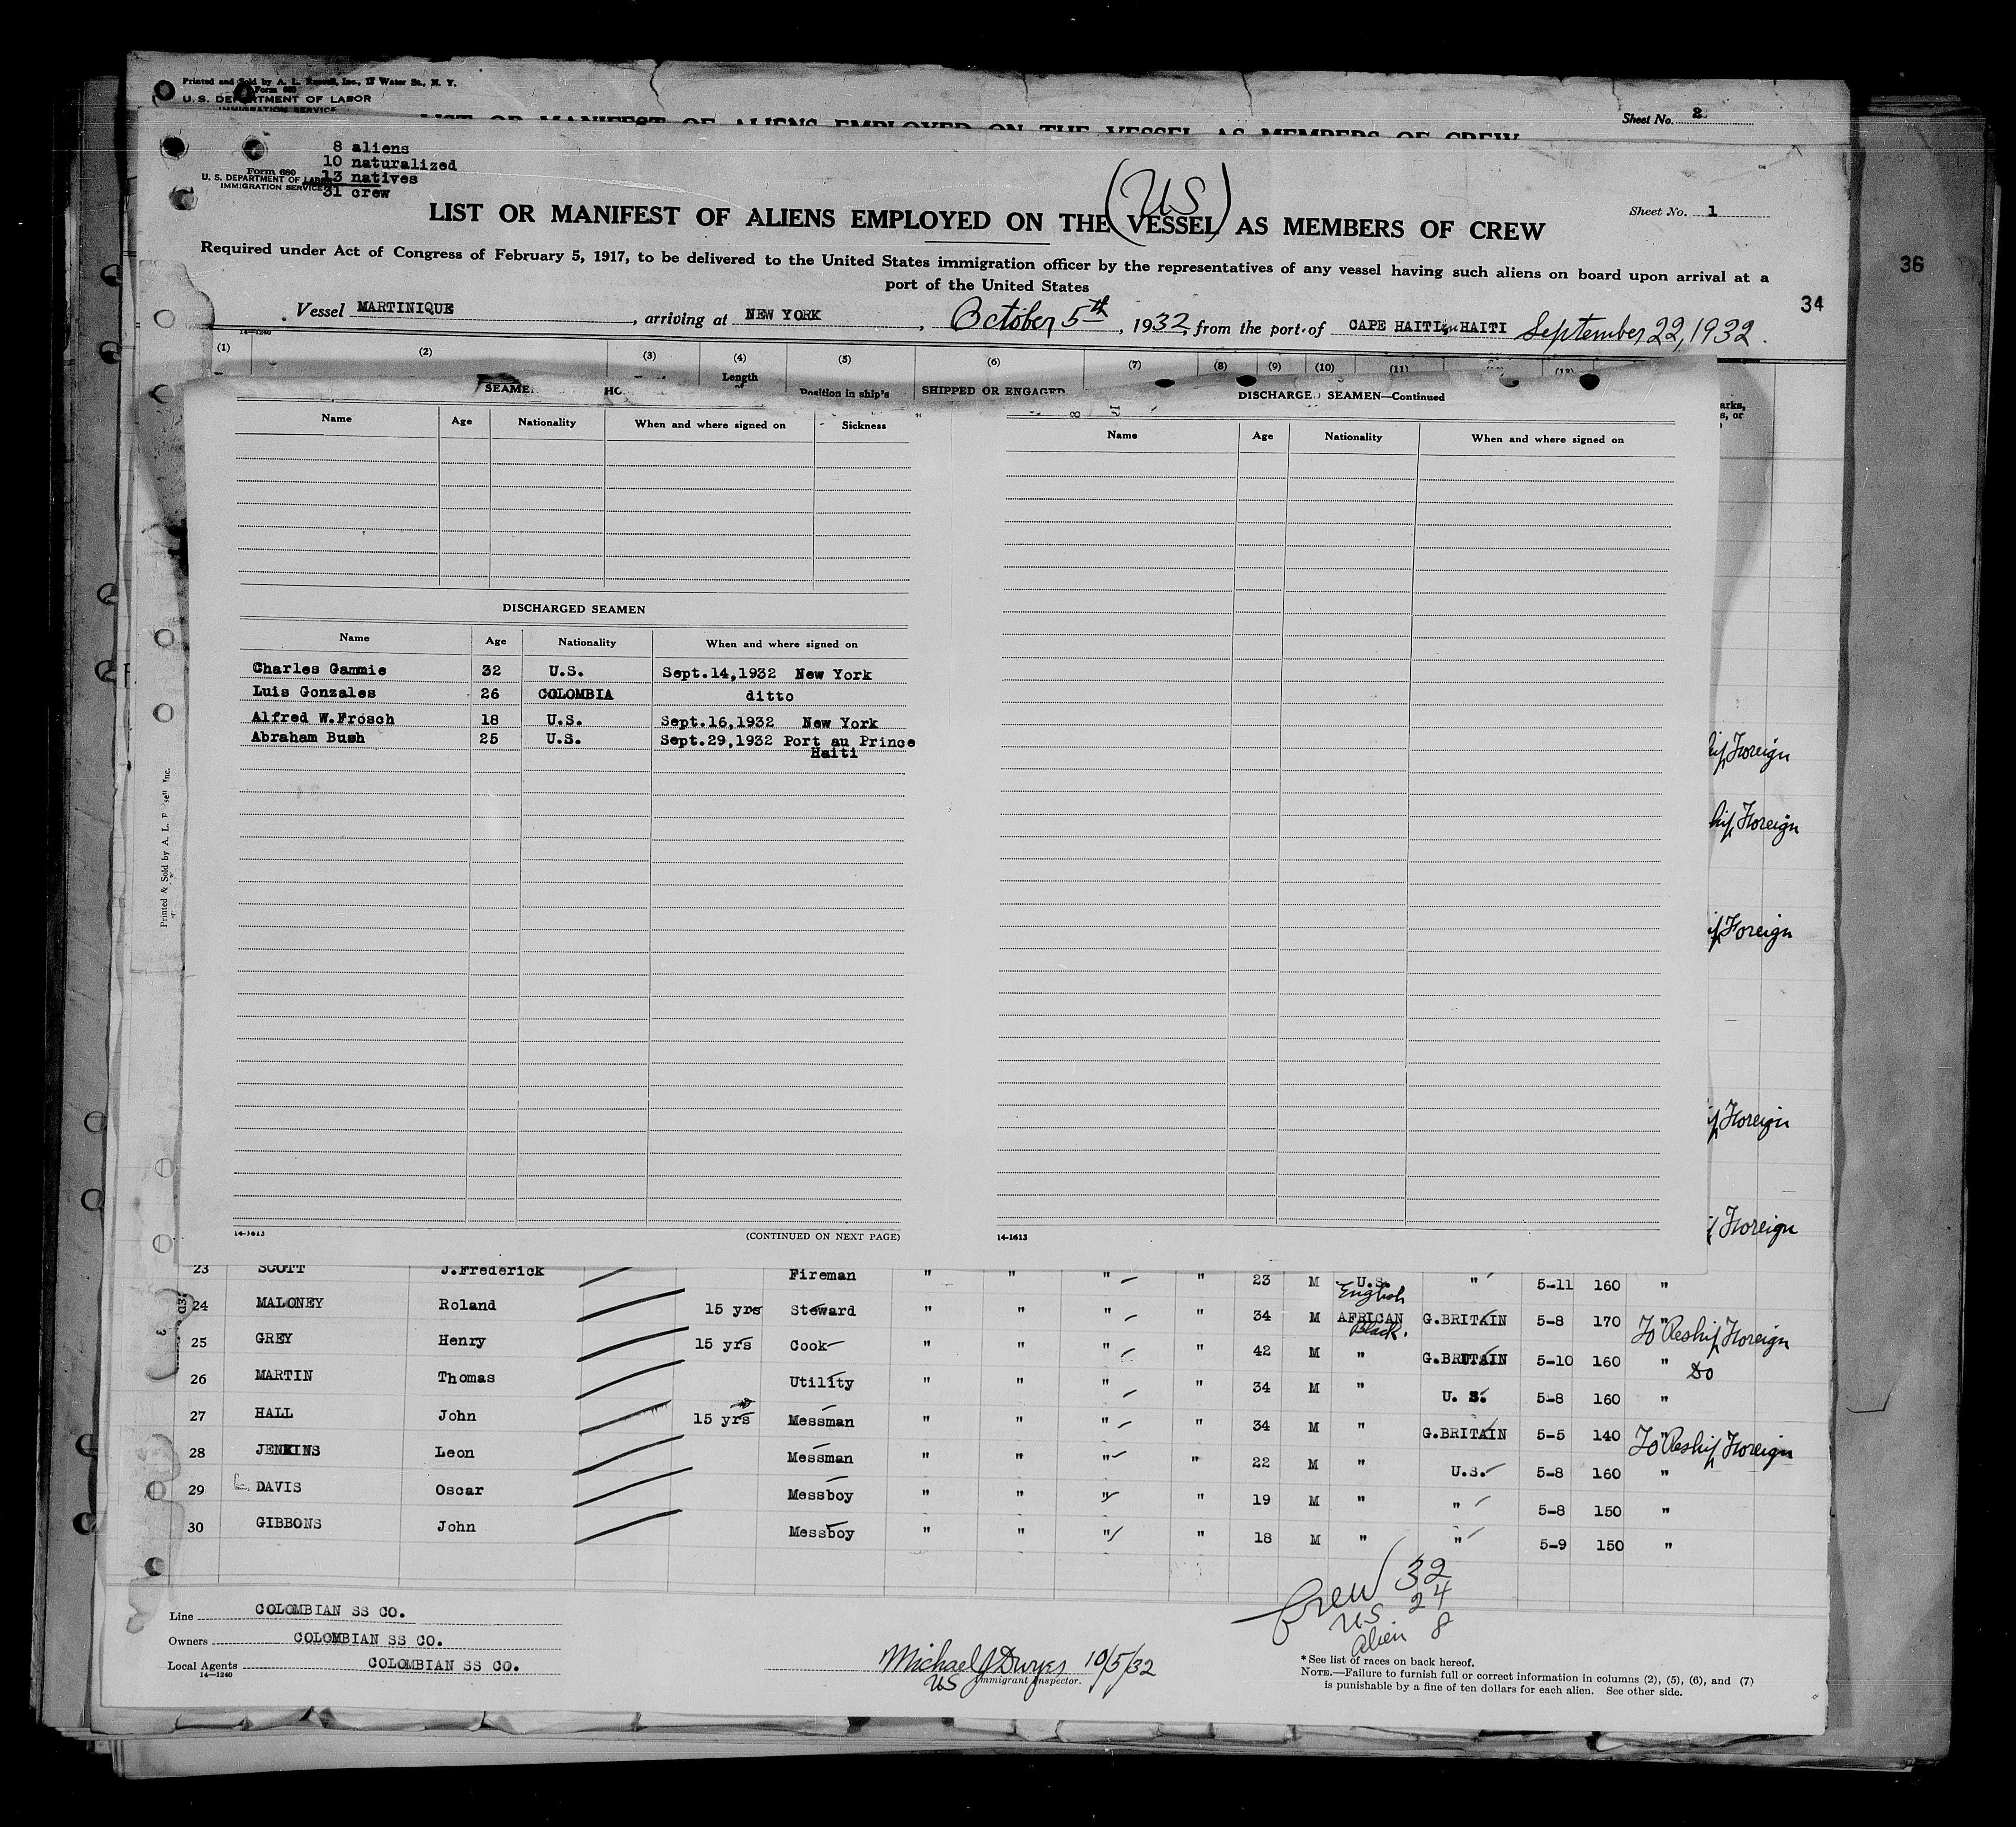 Printed and Sold by A. L. Russell, Inc., 17 Water St., N. Y.
Form 680
U. S. DEPARTMENT OF LABOR
IMMIGRATION SERVICE
LIST OR MANIFEST OF ALIENS EMPLOYED ON THE VESSEL AS MEMBERS OF CREW
Sheet No. 2
36
8 aliens
10 naturalized
13 natives
31 crew
Form 680
U. S. DEPARTMENT OF LABOR
IMMIGRATION SERVICE
(US)
Sheet No. 1
LIST OR MANIFEST OF ALIENS EMPLOYED ON THE VESSEL AS MEMBERS OF CREW
Required under Act of Congress of February 5, 1917, to be delivered to the United States immigration officer by the representatives of any vessel having such aliens on board upon arrival at a
port of the United States
34
Vessel MARTINIQUE, arriving at NEW YORK, October 5th, 1932, from the port of CAPE HAITI HAITI September 22, 1932.
14-1240
(1) (2) (3) (4) (5) (6) (7) (8) (9) (10) (11)
Length of
Position in ship's
SHIPPED OR ENGAGED
SEAME
DISCHARGED SEAMEN—Continued
Name Age Nationality When and where signed on Sickness
Name Age Nationality When and where signed on
DISCHARGED SEAMEN
Name Age Nationality When and where signed on
Charles Gammie 32 U.S. Sept.14,1932 New York
Luis Gonzales 26 COLOMBIA ditto
Alfred W.Frosch 18 U.S. Sept.16,1932 New York
Abraham Bush 25 U.S. Sept.29,1932 Port au Prince
Haiti
Foreign
Foreign
Foreign
Foreign
Foreign
14-1613 (CONTINUED ON NEXT PAGE)
14-1613
23 SCOTT J.Frederick Fireman " " " " 23 M U.S. " 5-11 160 "
English
24 MALONEY Roland 15 yrs Steward " " " " 34 M AFRICAN G.BRITAIN 5-8 170 " To Reship Foreign
Black.
25 GREY Henry 15 yrs Cook " " " " 42 M " G.BRITAIN 5-10 160 " Do
26 MARTIN Thomas Utility " " " " 34 M " U. S. 5-8 160 "
27 HALL John 15 yrs Messman " " " " 34 M " G.BRITAIN 5-5 140 " To Reship Foreign
28 JENKINS Leon Messman " " " " 22 M " U.S. 5-8 160 "
29 DAVIS Oscar Messboy " " " " 19 M " " 5-8 150 "
30 GIBBONS John Messboy " " " " 18 M " " 5-9 150 "
Crew 32
US 24
Alien 8
Line COLOMBIAN SS CO.
Owners COLOMBIAN SS CO.
Local Agents COLOMBIAN SS CO.
14-1240
Michael J Dwyer 10/5/32
US Immigrant Inspector.
* See list of races on back hereof.
NOTE.—Failure to furnish full or correct information in columns (2), (5), (6), and (7)
is punishable by a fine of ten dollars for each alien. See other side.